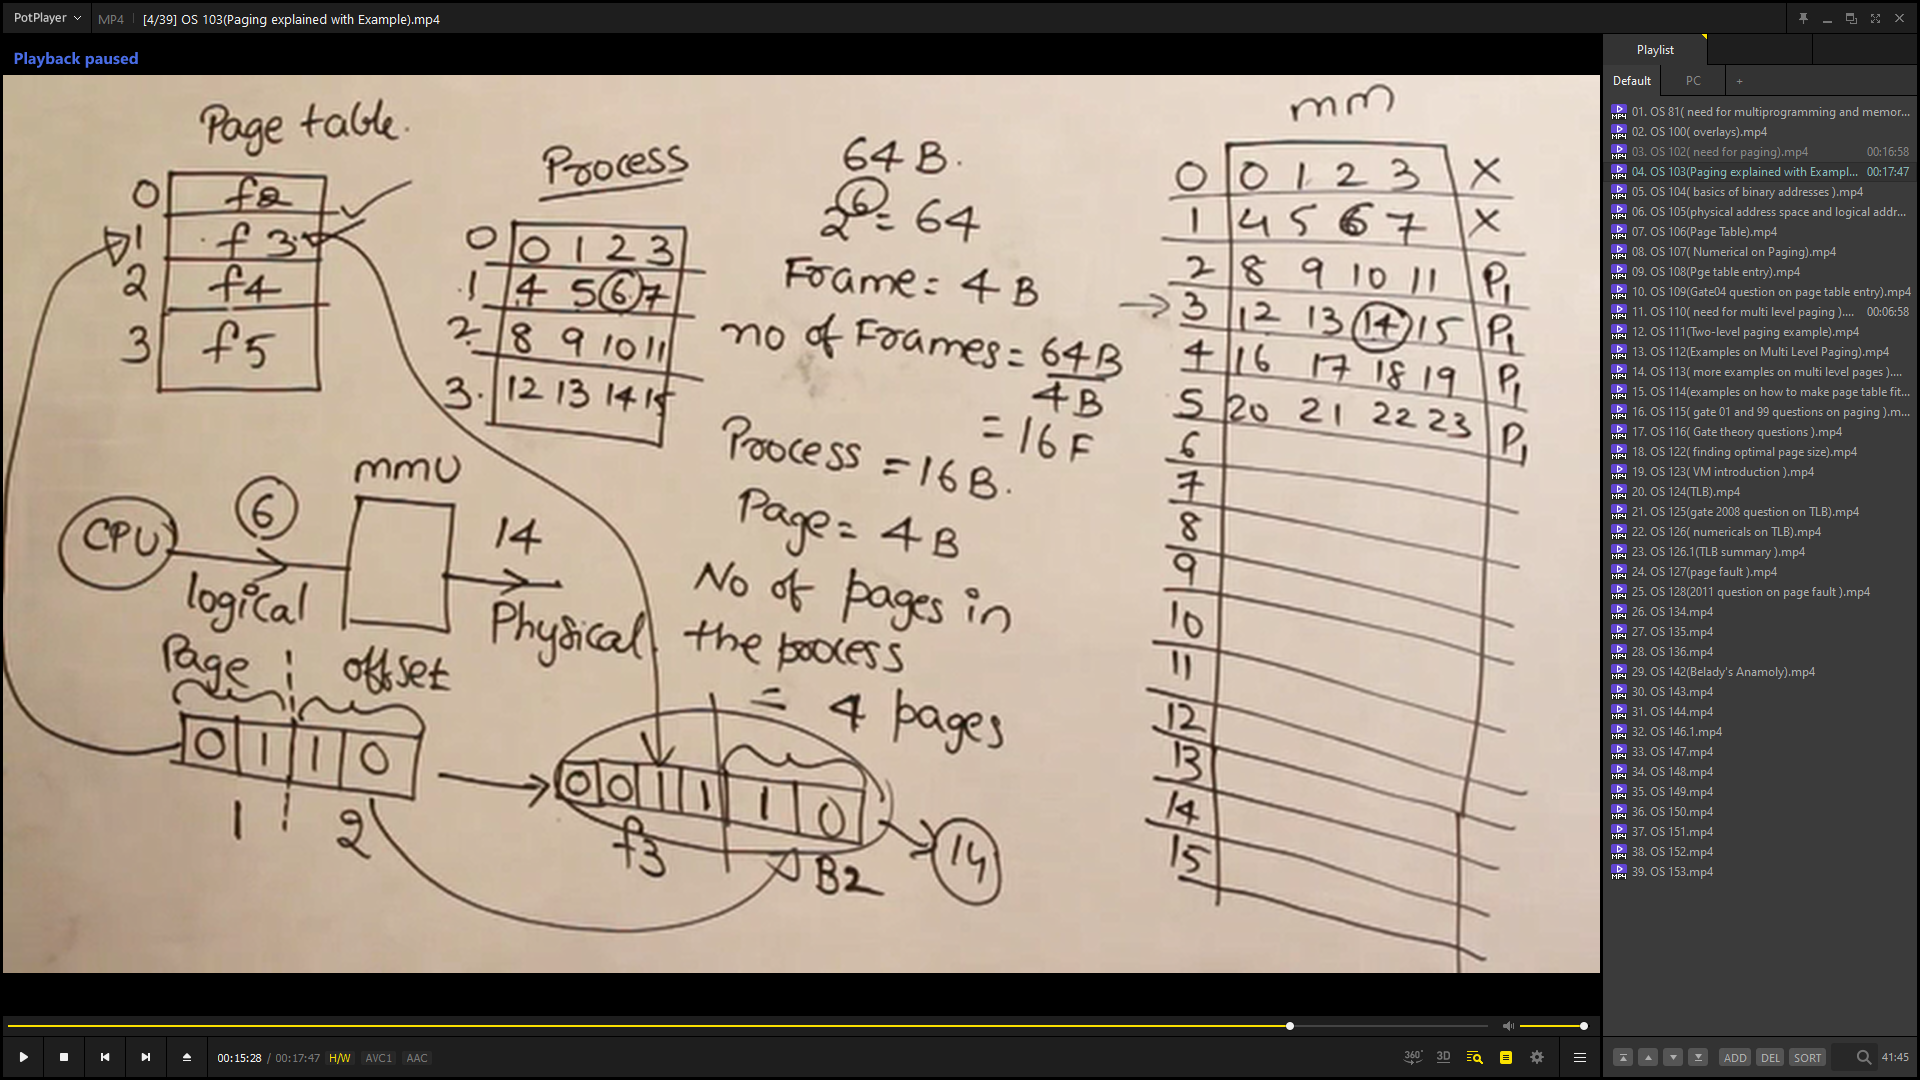 PotPlayer
MP4
[4/39] OS 103(Paging explained with Example).mp4
Playback paused
Page table.
0 f2
1 f3
2 f4
3 f5
Process
0 0 1 2 3
1 4 5 6 7
2 8 9 10 11
3. 12 13 14 15
64 B.
2^6 = 64
Frame = 4 B
no of Frames = 64B
4B
= 16 F
Process = 16 B.
Page = 4 B
No of pages in
the process
= 4 pages
mm
0 0 1 2 3 X
1 4 5 6 7 X
2 8 9 10 11 P1
3 12 13 14 15 P1
4 16 17 18 19 P1
5 20 21 22 23 P1
6
7
8
9
10
11
12
13
14
15
CPU
6
logical
mmU
14
Physical
Page offset
0 1 1 0
1 2
0 0 1 1 1 0
f3 B2
14
00:15:28 / 00:17:47 H/W AVC1 AAC
360°
3D
Playlist
Default PC +
01. OS 81( need for multiprogramming and memor...
02. OS 100( overlays).mp4
03. OS 102( need for paging).mp4 00:16:58
04. OS 103(Paging explained with Exampl... 00:17:47
05. OS 104( basics of binary addresses ).mp4
06. OS 105(physical address space and logical addr...
07. OS 106(Page Table).mp4
08. OS 107( Numerical on Paging).mp4
09. OS 108(Pge table entry).mp4
10. OS 109(Gate04 question on page table entry).mp4
11. OS 110( need for multi level paging ).... 00:06:58
12. OS 111(Two-level paging example).mp4
13. OS 112(Examples on Multi Level Paging).mp4
14. OS 113( more examples on multi level pages )....
15. OS 114(examples on how to make page table fit...
16. OS 115( gate 01 and 99 questions on paging ).m...
17. OS 116( Gate theory questions ).mp4
18. OS 122( finding optimal page size).mp4
19. OS 123( VM introduction ).mp4
20. OS 124(TLB).mp4
21. OS 125(gate 2008 question on TLB).mp4
22. OS 126( numericals on TLB).mp4
23. OS 126.1(TLB summary ).mp4
24. OS 127(page fault ).mp4
25. OS 128(2011 question on page fault ).mp4
26. OS 134.mp4
27. OS 135.mp4
28. OS 136.mp4
29. OS 142(Belady's Anamoly).mp4
30. OS 143.mp4
31. OS 144.mp4
32. OS 146.1.mp4
33. OS 147.mp4
34. OS 148.mp4
35. OS 149.mp4
36. OS 150.mp4
37. OS 151.mp4
38. OS 152.mp4
39. OS 153.mp4
ADD DEL SORT 41:45